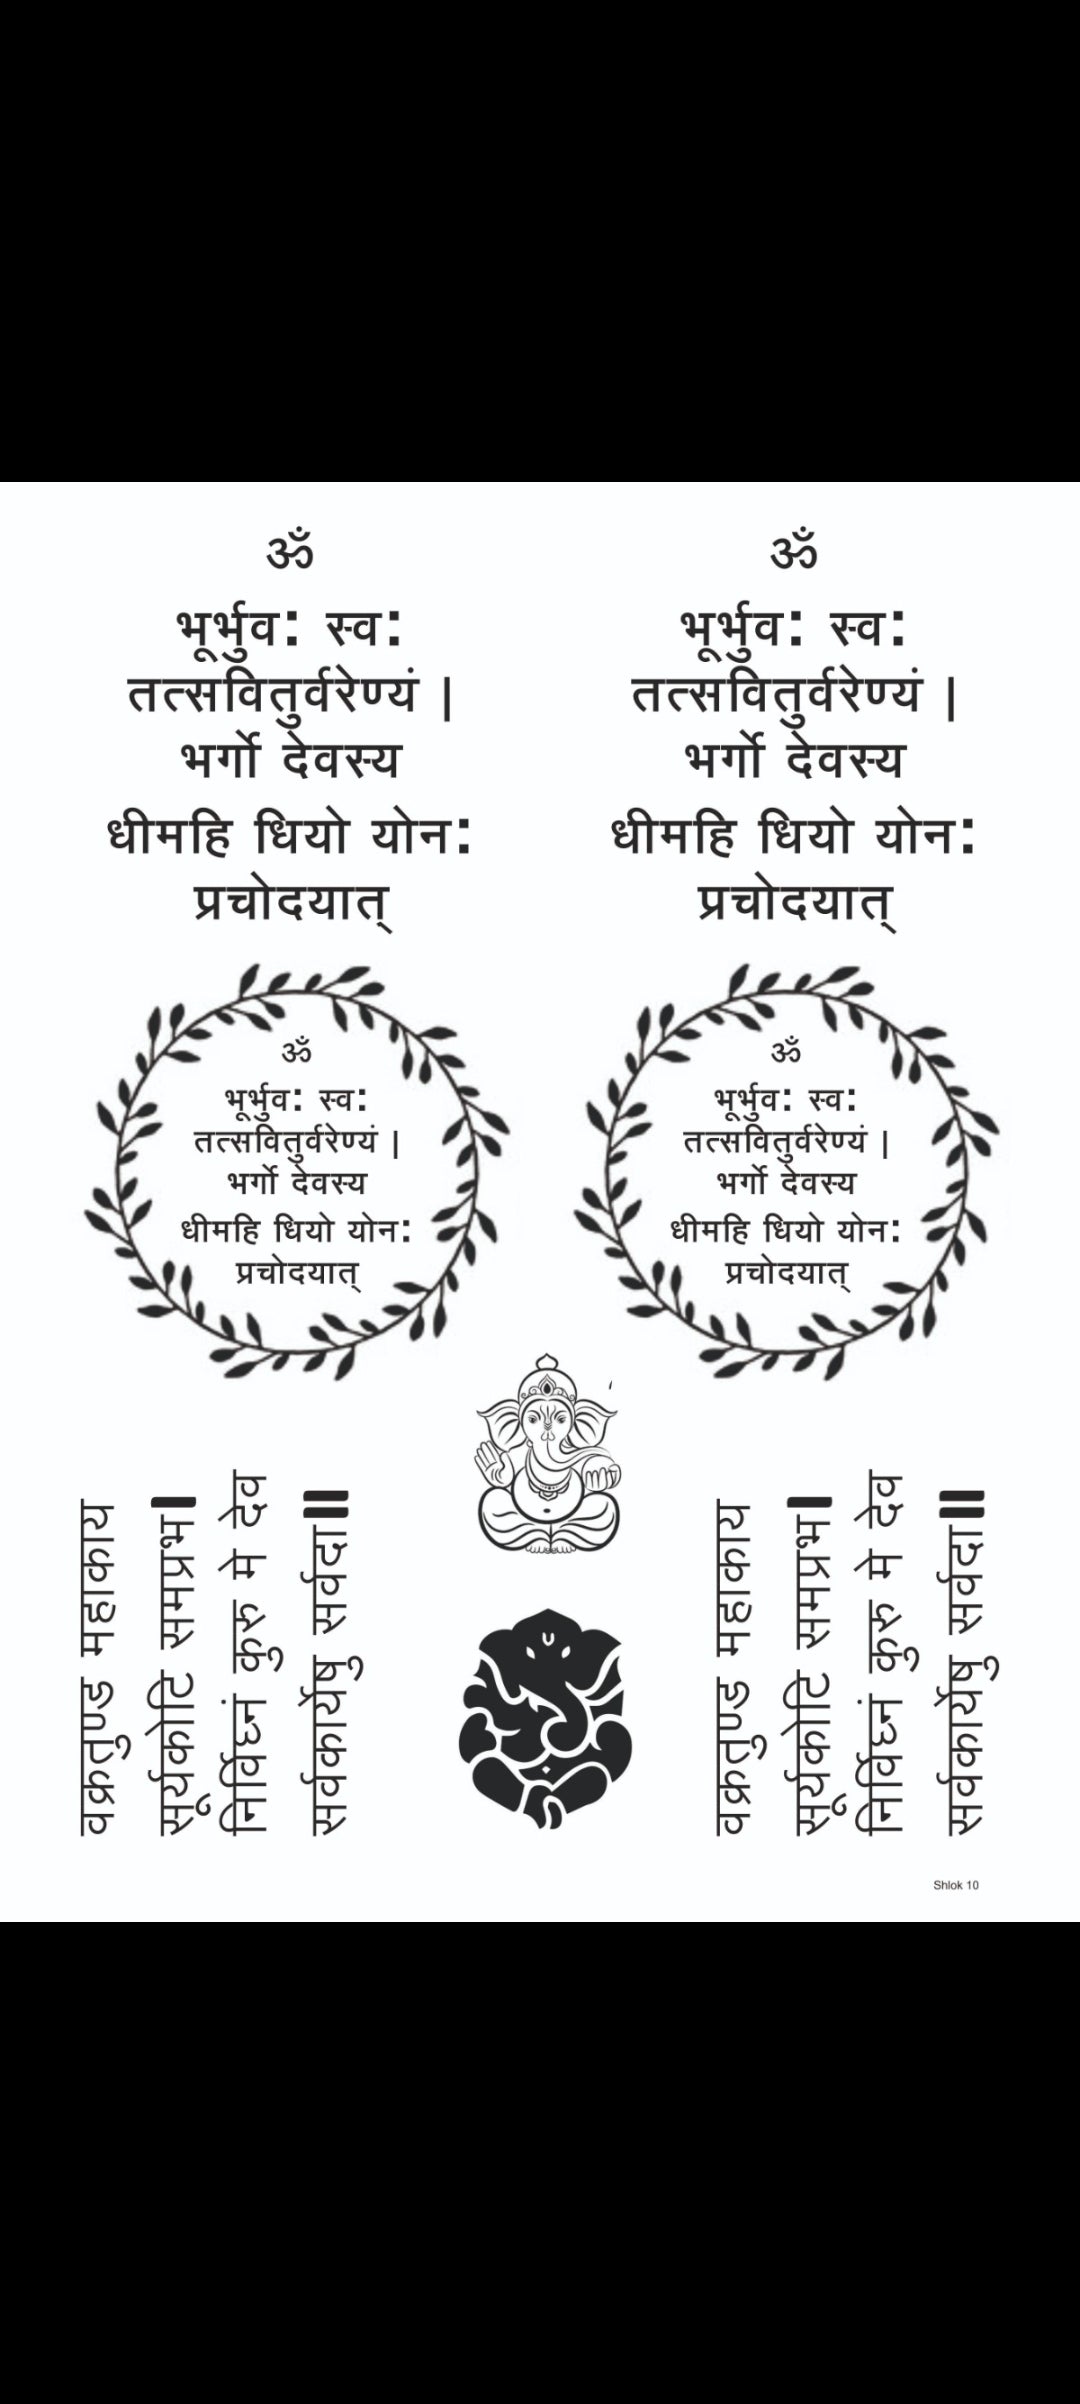 ॐ
भूर्भुव: स्व:
तत्सवितुर्वरेण्यं |
भर्गो देवस्य
धीमहि धियो योन:
प्रचोदयात्
ॐ
भूर्भुव: स्व:
तत्सवितुर्वरेण्यं |
भर्गो देवस्य
धीमहि धियो योन:
प्रचोदयात्
ॐ
भूर्भुव: स्व:
तत्सवितुर्वरेण्यं |
भर्गो देवस्य
धीमहि धियो योन:
प्रचोदयात्
ॐ
भूर्भुव: स्व:
तत्सवितुर्वरेण्यं |
भर्गो देवस्य
धीमहि धियो योन:
प्रचोदयात्
वक्रतुण्ड महाकाय
सूर्यकोटि समप्रभ।
निर्विघ्नं कुरु मे देव
सर्वकार्येषु सर्वदा॥
वक्रतुण्ड महाकाय
सूर्यकोटि समप्रभ।
निर्विघ्नं कुरु मे देव
सर्वकार्येषु सर्वदा॥
Shlok 10